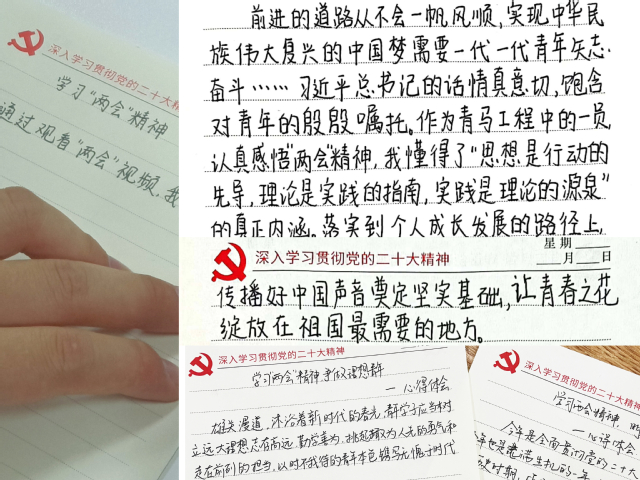 深入学习贯彻党的二十大精神
学习"两会"精神
通过观看"两会"视频,我
前进的道路从不会一帆风顺,实现中华民
族伟大复兴的中国梦需要一代一代青年矢志
奋斗……习近平总书记的话情真意切,饱含
对青年的殷殷嘱托。作为青马工程中的一员
认真感悟"两会"精神,我懂得了"思想是行动的
先导,理论是实践的指南,实践是理论的源泉"
的真正内涵。落实到个人成长发展的路径上,
星期
深入学习贯彻党的二十大精神
月 日
传播好中国声音奠定坚实基础,让青春之花
绽放在祖国最需要的地方。
深入学习贯彻党的二十大精神
学习"两会"精神 争做理想青年
—心得体会
雄关漫道,沐浴着新时代的春光,青年学子应当树
立远大理想志存高远,勤学善为,挑起
走在前列的担当,以时不我待的青年本色
深入学习贯彻党的二十大精神
学习两会精神,
—心得体
今年是全面贯彻党的二十大